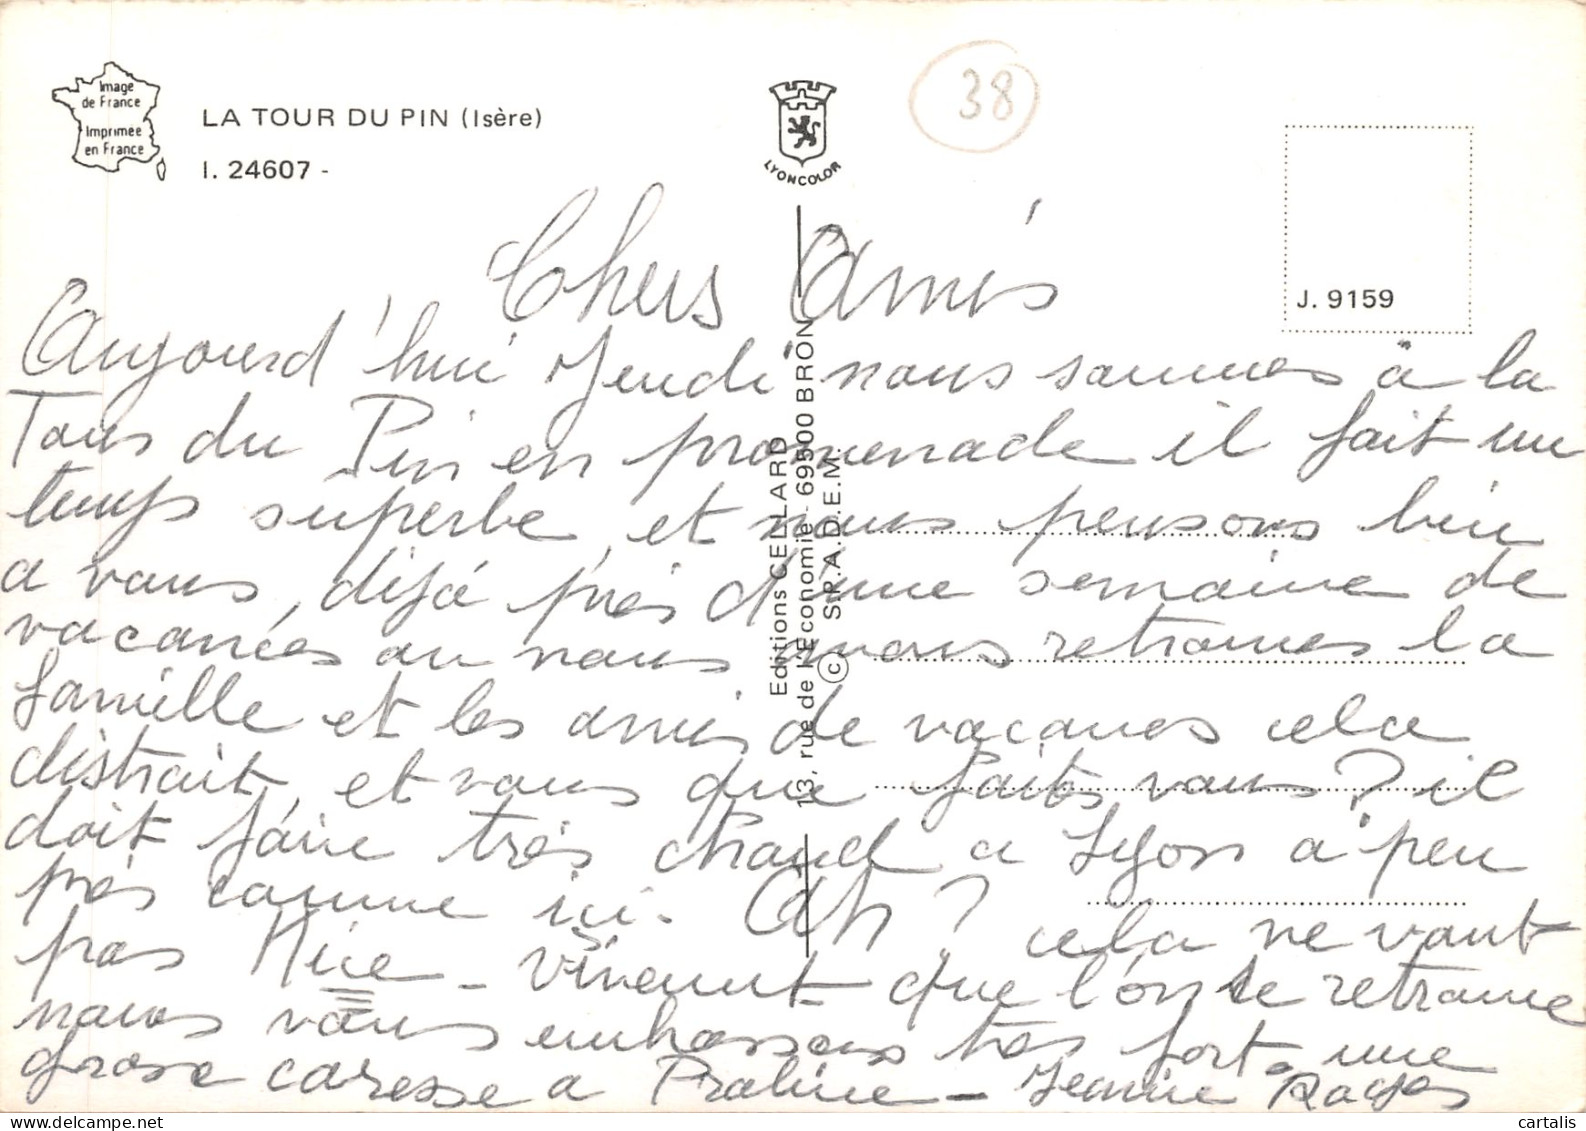 Image
de France
Imprimée
en France
LA TOUR DU PIN (Isère)
I. 24607 -
LYONCOLOR
38
J. 9159
Editions CELLARD
13, rue de l'Economie - 69500 BRON
© S.P.A.D.E.M.
Chers Amis
Aujourd'hui Jeudi nous sommes à la
Tour du Pin en promenade il fait un
temps superbe, et nous pensons bien
a vous, déjà près d'une semaine de
vacances ou nous avons retrouvés la
famille et les amis de vacances cela
distrait, et vous que faites vous ? il
doit faire très chaud a Lyon a peu
près comme ici. Ah ? cela ne vaut
pas Nice - vivement que l'on se retrouve
nous vous embrassons très fort. une
grosse caresse a Praline - Jeannine
cartalis